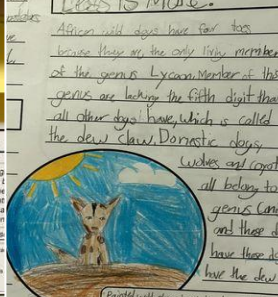 Less is More.
African wild dogs have four toes
because they are the only living member
of the genus Lycaon. Member of this
genus are lacking the fifth digit that
all other dogs have, which is called
the dew claw. Domestic dogs,
wolves and coyot
all belong to
genus Can
and these d
have these d
have the dew
Painted wild